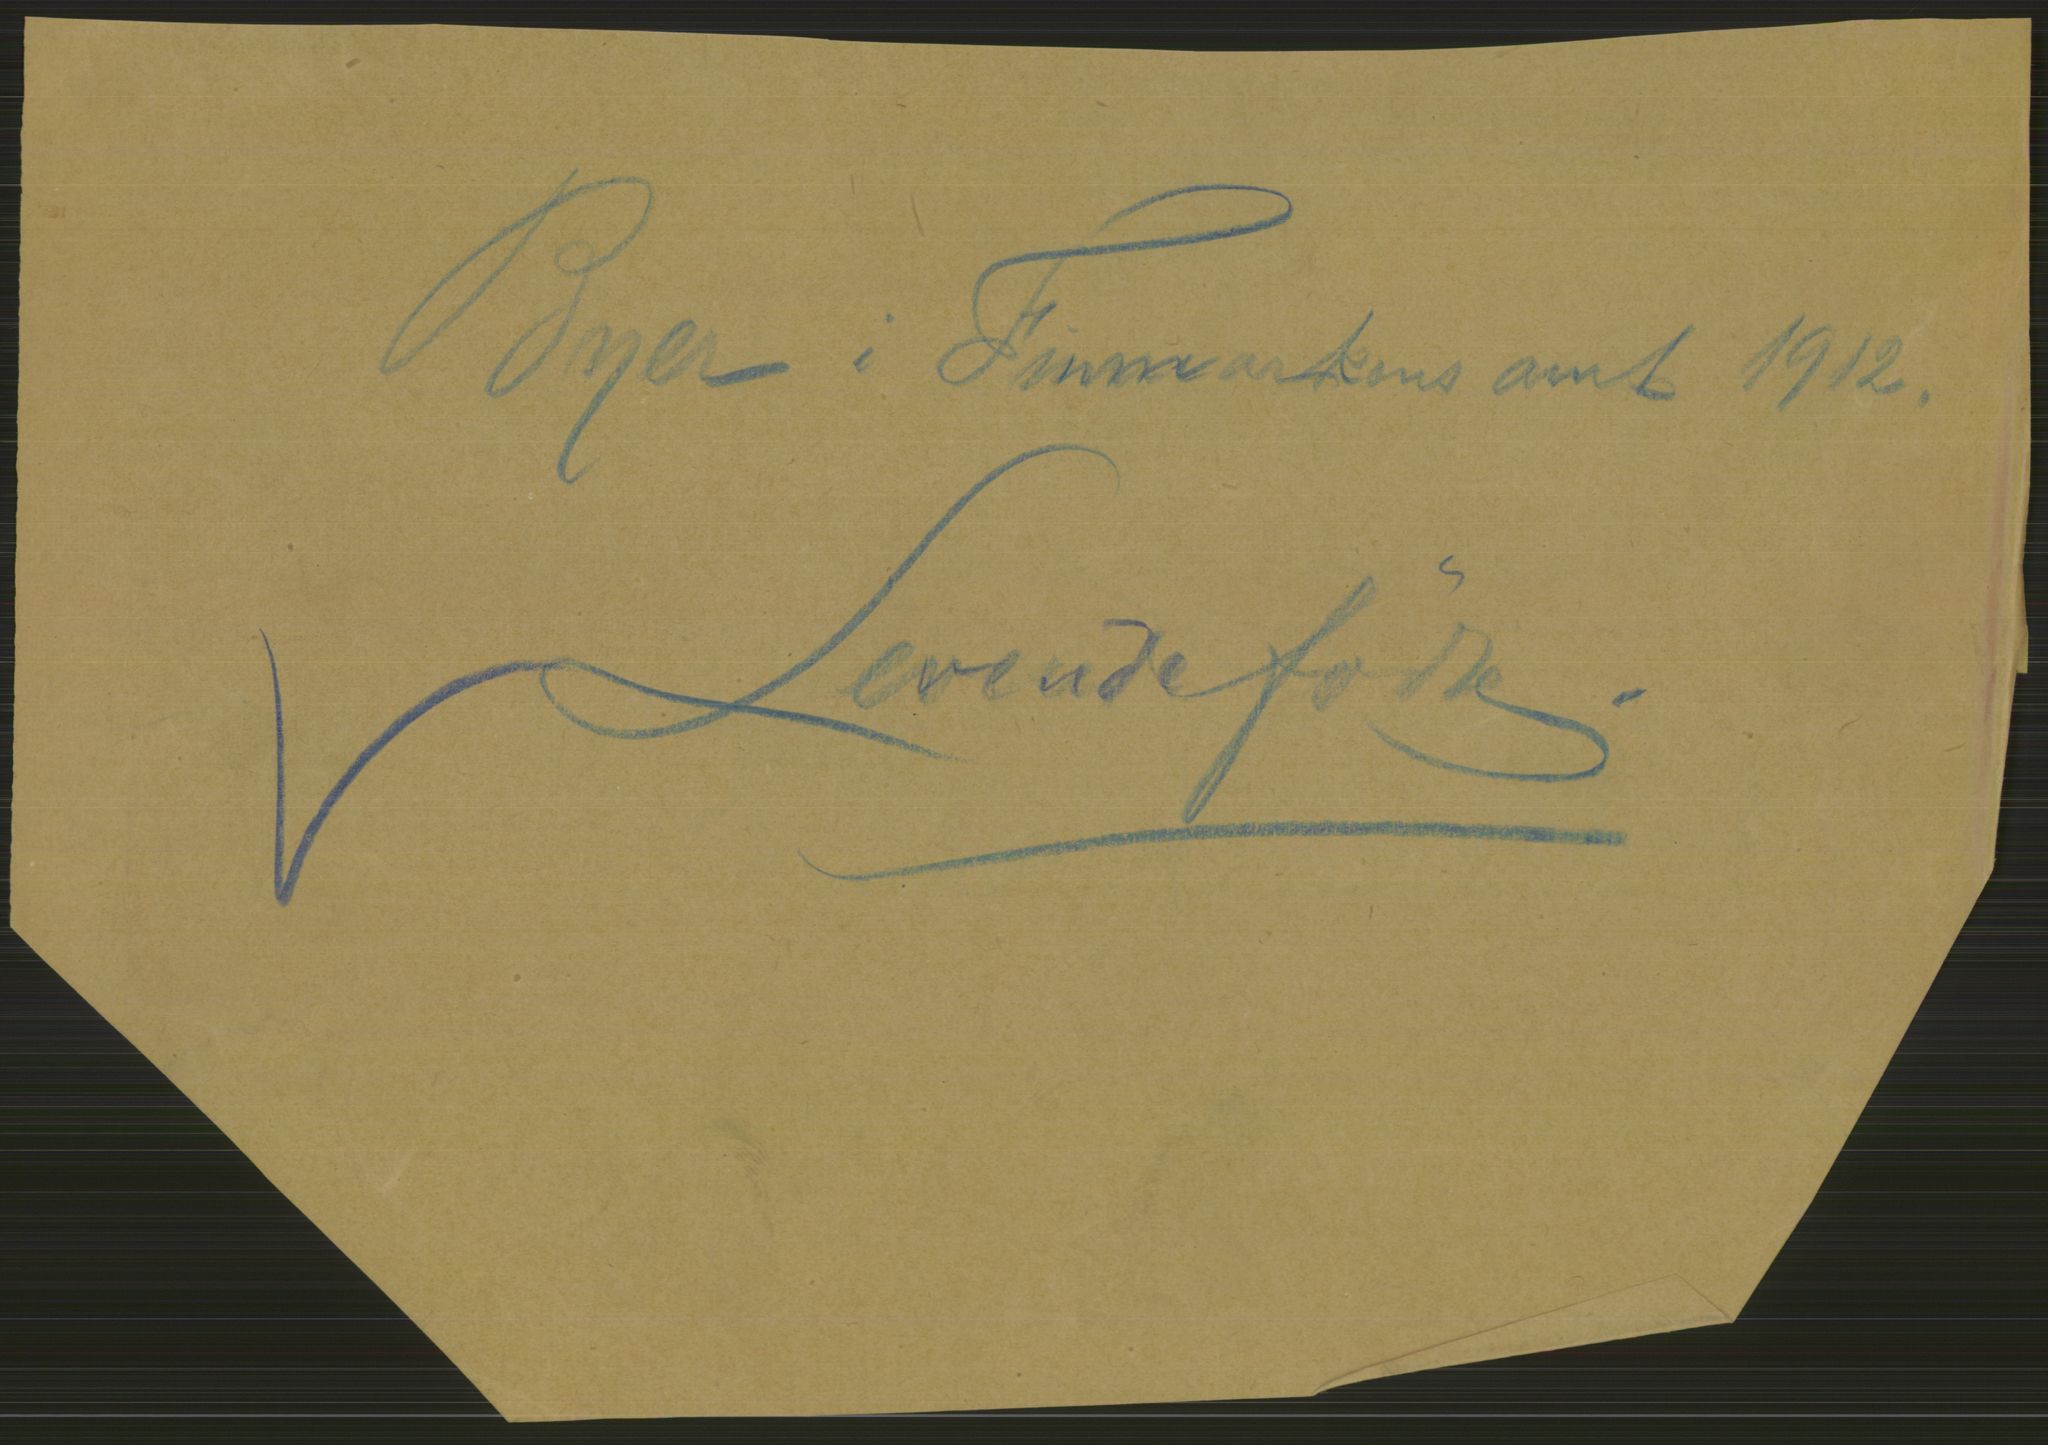 Byer i Finmarkens amt 1912.
Levendefödte.